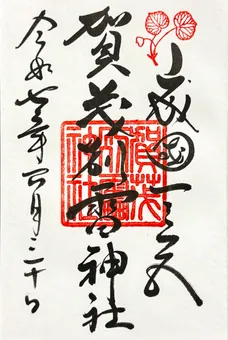 山城國一之宮
賀茂別雷神社
令和七年四月二十日
賀茂別雷神社